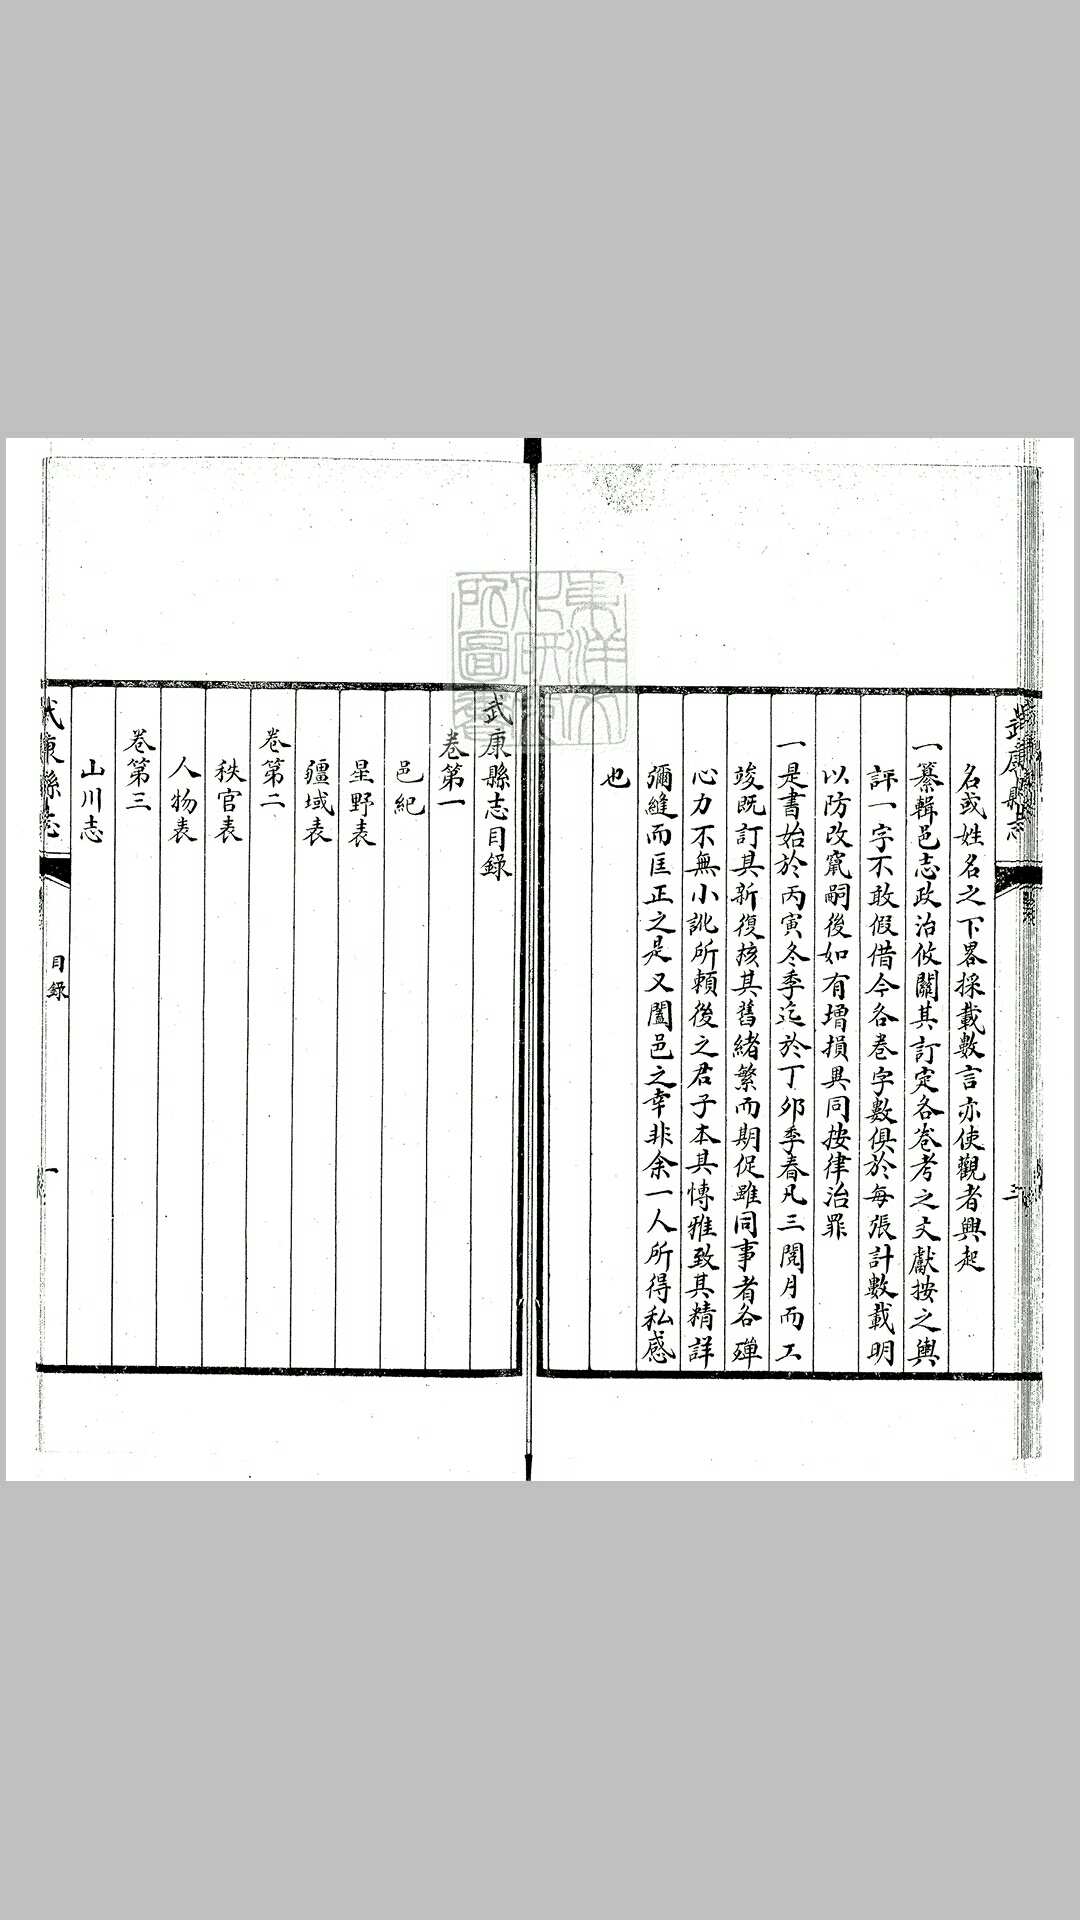 武康縣志
三
名或姓名之下畧採載數言亦使觀者興起
一纂輯邑志政治攸關其訂定各卷考之文獻按之輿
評一字不敢假借今各卷字數俱於每張計數載明
以防改竄嗣後如有增損異同按律治罪
一是書始於丙寅冬季迄於丁卯季春凡三閱月而工
竣既訂其新復核其舊緒繁而期促雖同事者各殫
心力不無小訛所賴後之君子本其博雅致其精詳
彌縫而匡正之是又闔邑之幸非余一人所得私感
也
武康縣志目錄
卷第一
邑紀
星野表
疆域表
卷第二
秩官表
人物表
卷第三
山川志
武康縣志
目錄
一